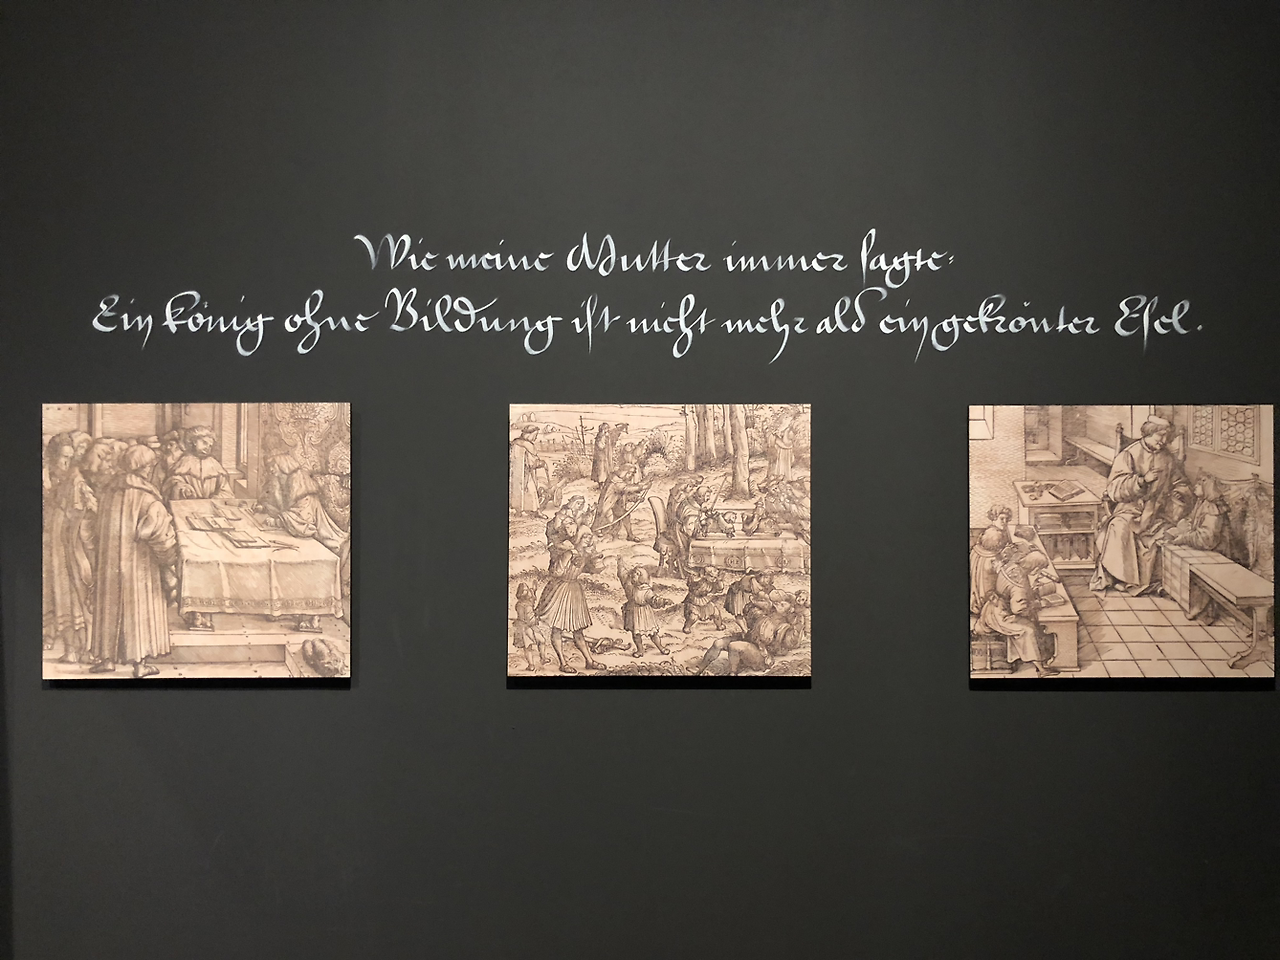 Wie meine Mutter immer sagte:
Ein könig ohne Bildung ist nicht mehr als ein gekrönter Esel.